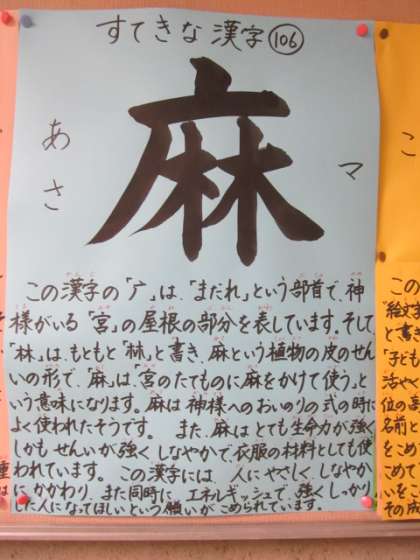 すてきな漢字 106
麻
あさ
マ
この漢字の「广」は、「まだれ」という部首で、神
様がいる「宮」の屋根の部分を表しています。そして
「林」は、もともと「𣏟」と書き、麻という植物の皮のせん
いの形で、「麻」は、「宮のたてものに麻をかけて使う」と
いう意味になります。麻は神様へのおいのりの式の時に
よく使われたそうです。また、麻はとても生命力が強く
しかもせんいが強くしなやかで衣服の材料としても使
われています。この漢字には、人にやさしく、しなやか
にかかわり、また同時に、エネルギッシュで、強くしっかり
した人になってほしいという願いがこめられています。
こ
この
「絵文
と書き
「子ども
活や
位の
名前と
をこめ
こめて
いをこ
その成